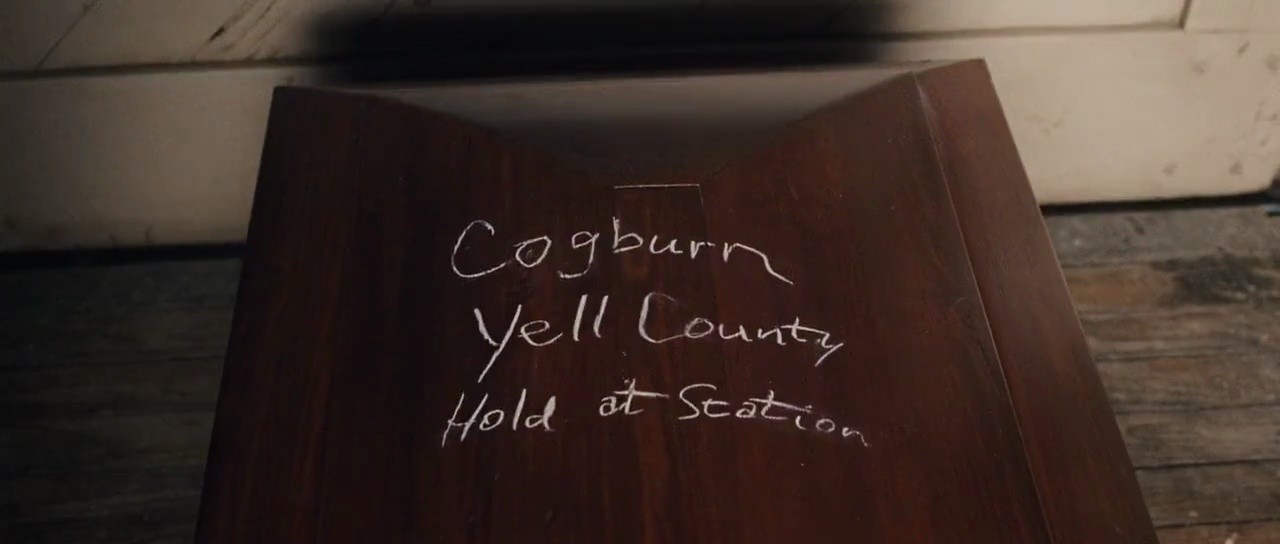 Cogburn
Yell County
Hold at Station